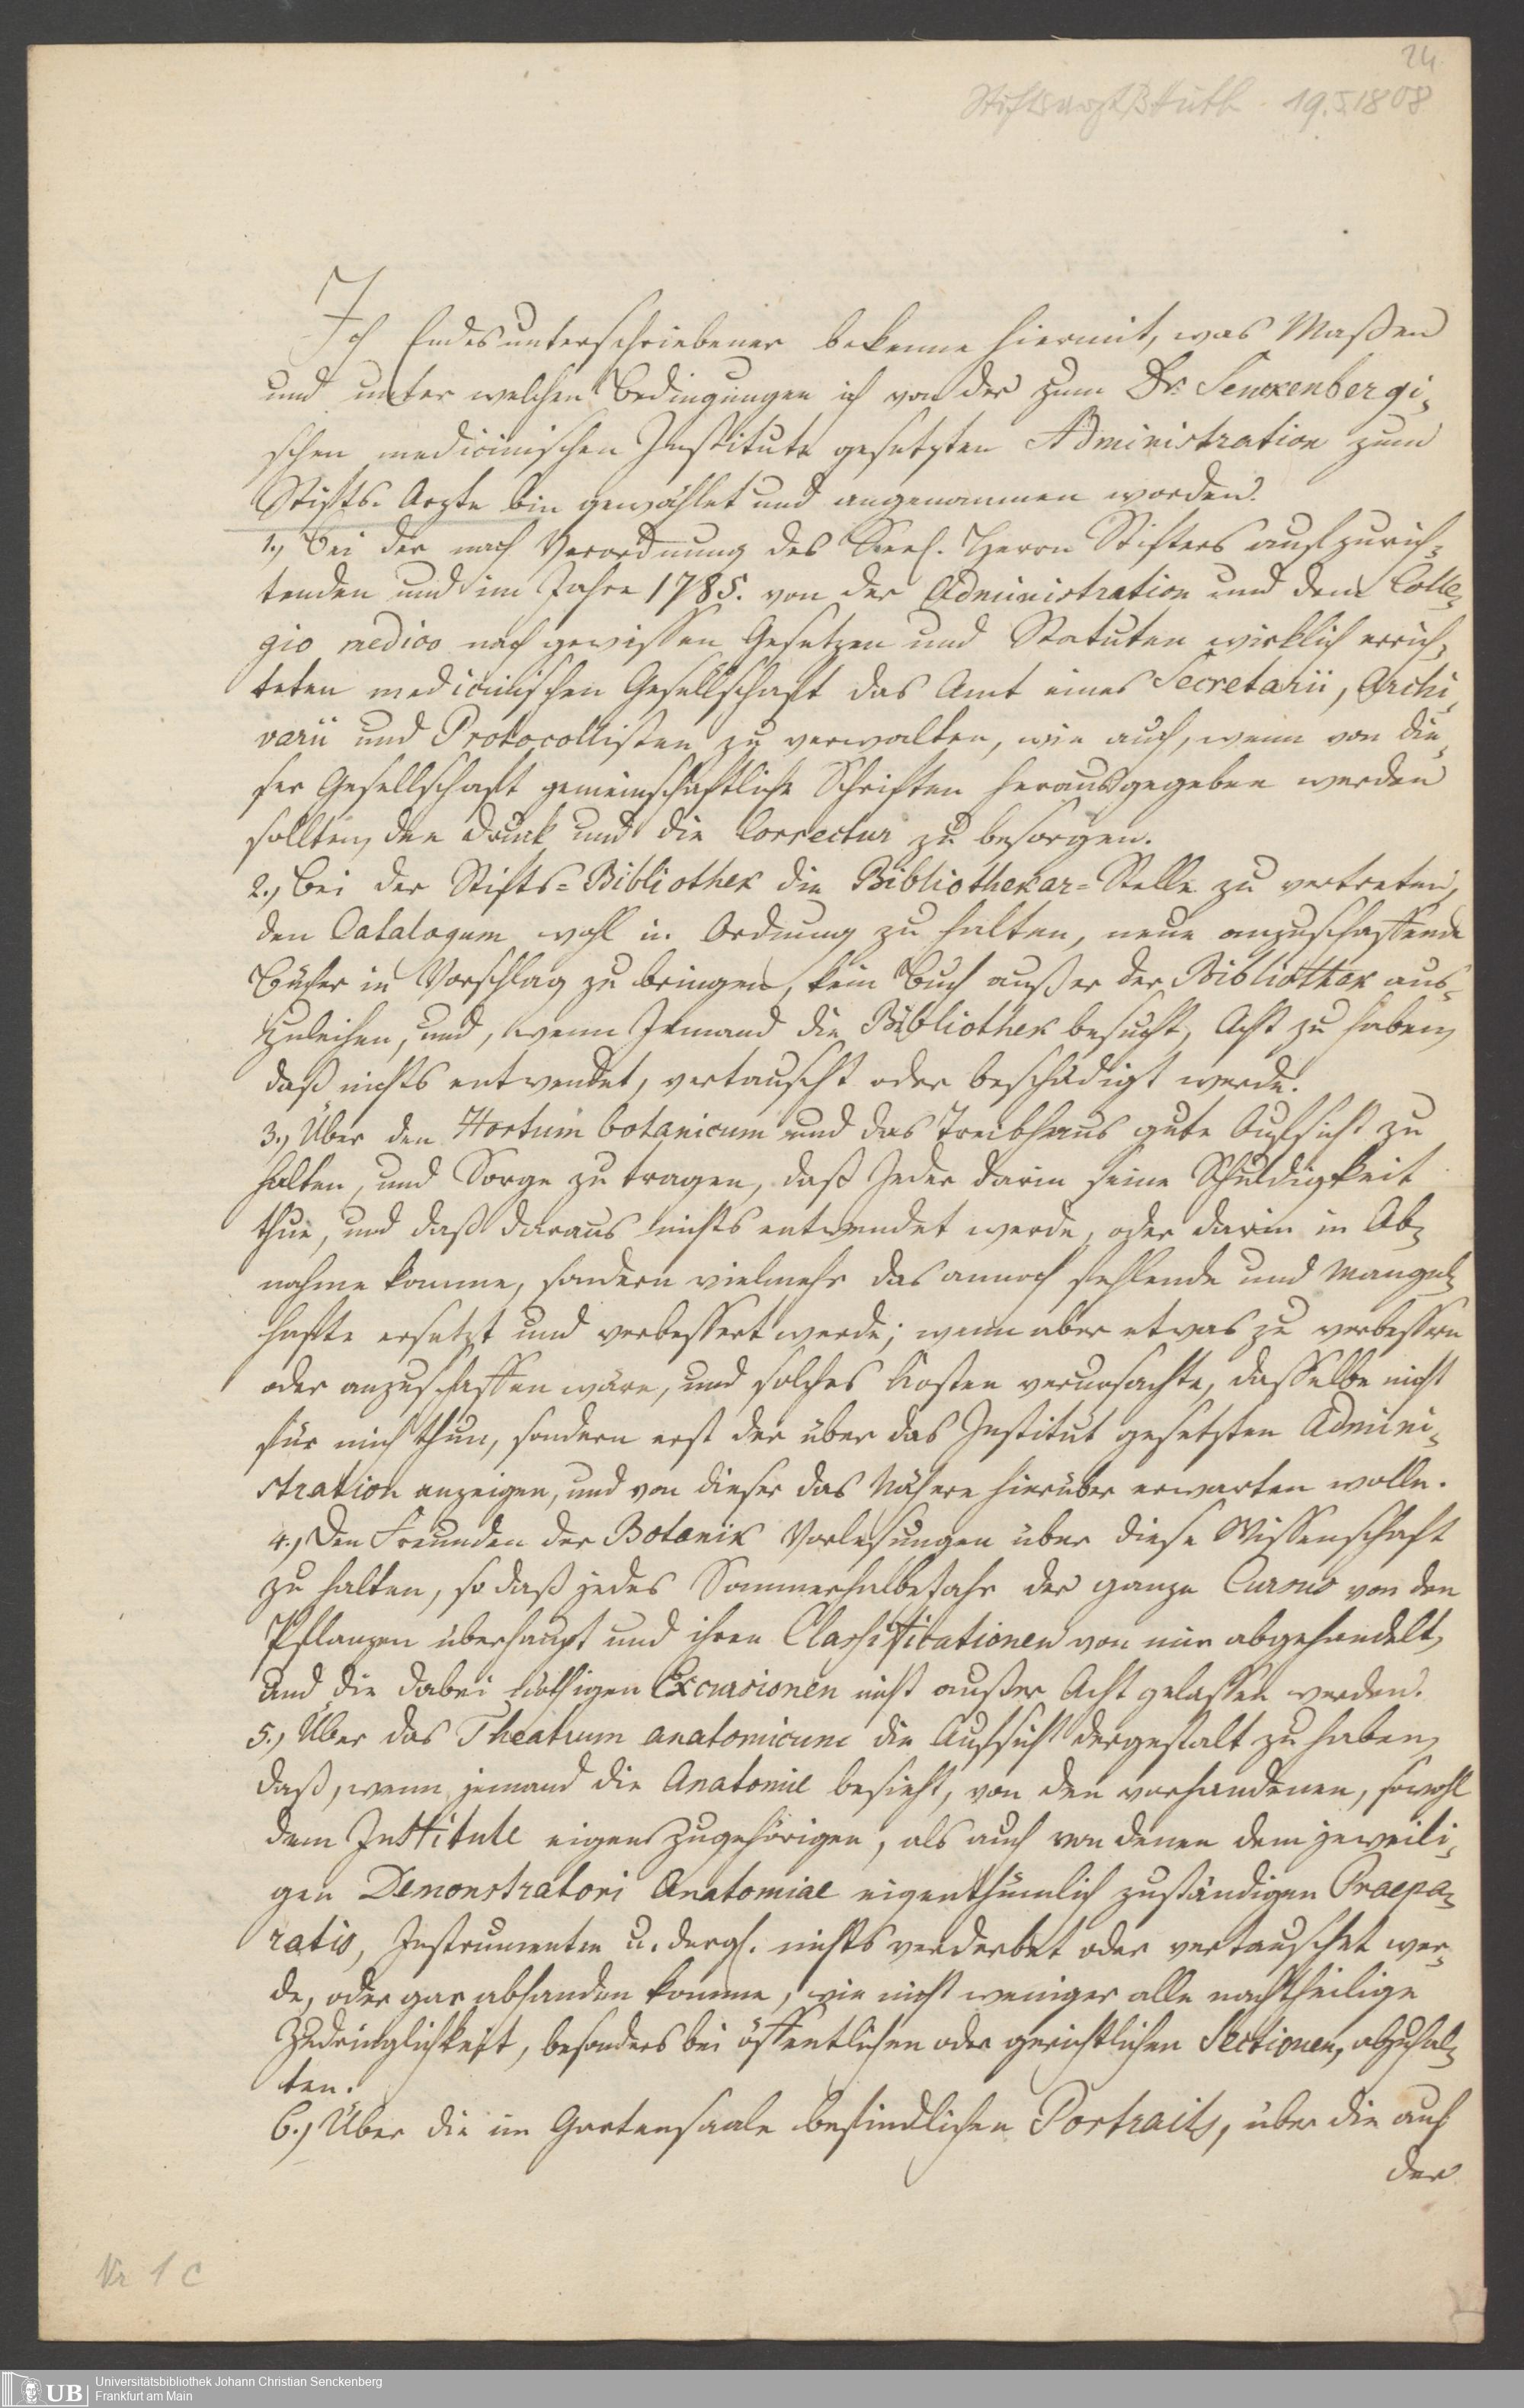 24.
19.I.1808
Ich Endesunterschriebener bekenne hiermit, was Maßen
und unter welchen Bedingungen ich von der zum Dr. Senckenbergi-
schen medicinischen Institute gesetzten Administration zum
Stifts-Arzte bin gewählet und angenommen worden.
1.) Bei der nach Verordnung des Seel. Herrn Stifters aufzurich-
tenden und im Jahre 1785. von der Administration und dem Colle-
gio medico nach gewissen Gesetzen und Statuten wirklich errich-
teten medicinischen Gesellschaft das Amt eines Secretarii, Archi-
varii und Protocollisten zu verwalten, wie auch, wenn von die-
ser Gesellschaft gemeinschaftliche Schriften herausgegeben werden
sollten, den Druck und die Correctur zu besorgen.
2.) Bei der Stifts-Bibliothek die Bibliothekar-Stelle zu vertreten,
den Catalogum wohl in Ordnung zu halten, neue anzuschaffende
Bücher in Vorschlag zu bringen, kein Buch außer der Bibliothek aus-
zuleihen, und, wenn Jemand die Bibliothek besucht, Acht zu haben,
daß nichts entwendet, vertauscht oder beschädigt werde.
3.) Über den Hortum botanicum und das Treibhaus gute Aufsicht zu
halten, und Sorge zu tragen, daß Jeder darin seine Schuldigkeit
thue, und daß daraus nichts entwendet werde, oder darin in Ab-
nahme komme, sondern vielmehr das annoch fehlende und Mangel-
hafte ersetzt und verbessert werde; wenn aber etwas zu verbessern
oder anzuschaffen wäre, und solches Kosten verursachte, dasselbe nicht
für mich thun, sondern erst der über das Institut gesetzten Admini-
stration anzeigen, und von dieser das Nähere hierüber erwarten wolle.
4.) Den Freunden der Botanik Vorlesungen über diese Wissenschaft
zu halten, so daß jedes Sommerhalbejahr der ganze Cursus von den
Pflanzen überhaupt und ihren Classificationen von mir abgehandelt,
und die dabei nöthigen Excursionen nicht außer Acht gelassen werden.
5.) Über das Theatrum anatomicum die Aufsicht dergestalt zu haben,
daß, wenn jemand die Anatomie besieht, von den vorhandenen, sowohl
dem Institute eigen zugehörigen, als auch von denen dem jeweili-
gen Demonstratori Anatomiae eigenthümlich zuständigen Praepa-
ratis, Instrumenten u. dergl. nichts verderbet oder vertauschet wer-
de, oder gar abhanden komme, wie nicht weniger alle nachtheilige
Zudringlichkeit, besonders bei öffentlichen oder gerichtlichen Sectionen, abzuhal-
ten.
6.) Über die im Gartensaale befindlichen Portraits, über die auf
der
Nr 1 c
UB
Universitätsbibliothek Johann Christian Senckenberg
Frankfurt am Main